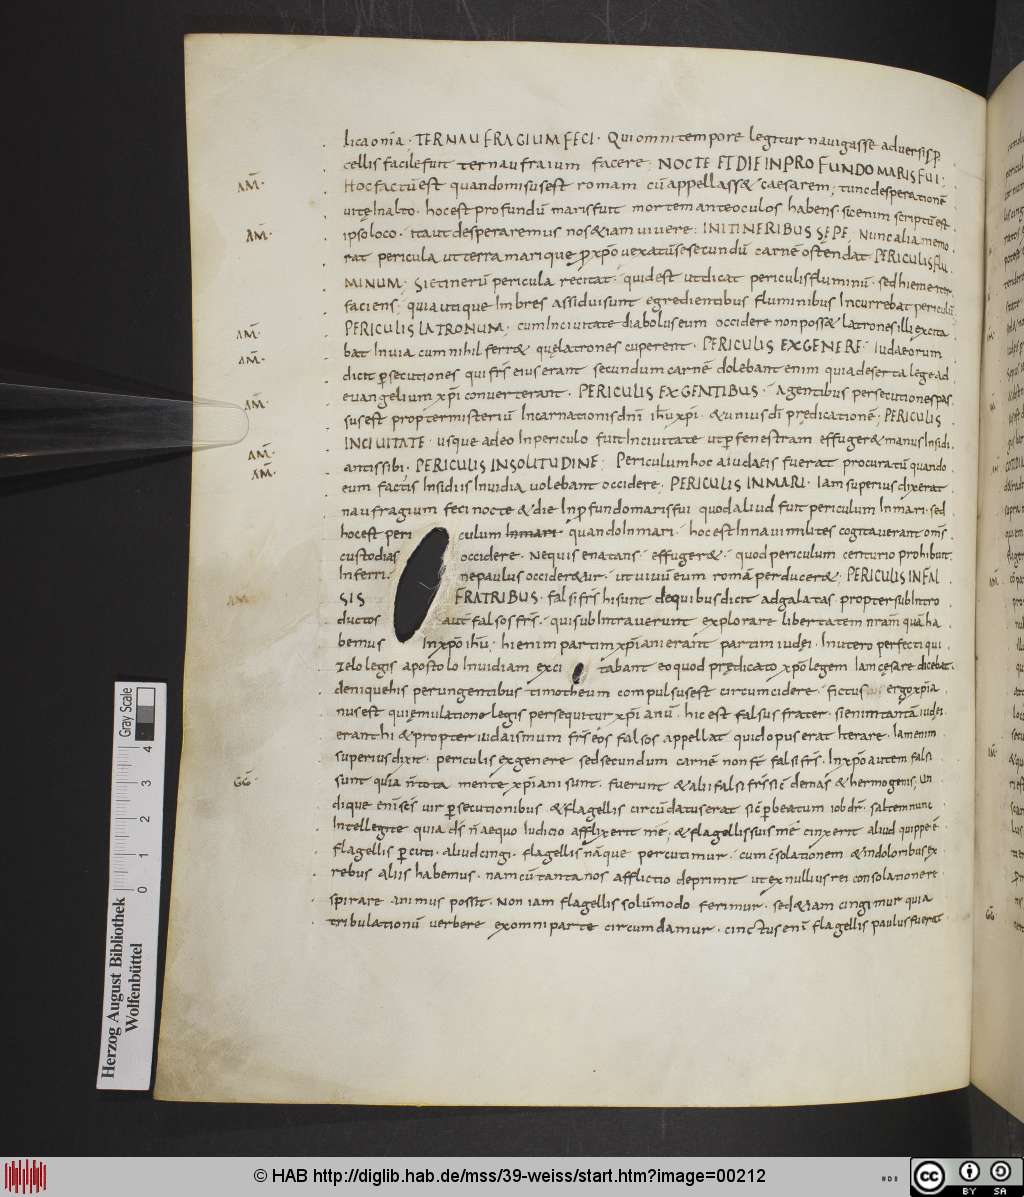 licaonia · TER NAUFRAGIUM FECI · Qui omni tempore legitur navigasse adversis p
cellis facile fuit ter naufraium facere ; NOCTE ET DIE IN PROFUNDO MARIS FUI ;
AM̅ · Hoc factū est quando misus est romam cū appellass& caesarem ; tunc desperationē
vitę In alto · hoc est profundū maris fuit mortem ante oculos habens · sic enim scriptū est
AM̅ · ipso loco · ita ut desperaremus nos &iam vivere ; IN ITINERIBUS SEPE ; Nunc alia memo
rat pericula ut terra marique p xp̄o vexatū se secundū carnē ostendat PERICULIS FLU
MINUM ; Sic tinerū pericula recitat · quid est ut dicat periculis fluminū · sed hieme iter
faciens · quia utique Imbres assidui sunt egredientibus fluminibus Incurrebat periculū
AM̅ · PERICULIS LATRONUM · cum In civitate diabolus eum occidere non poss& latrones illi excita
AM̅ · bat In via cum nihil ferr& quę latrones cuperent · PERICULIS EX GENERE · Iudaeorum
dicit psecutiones qui frs̄ eius erant secundum carnē dolebant enim quia deserta lege ad
AM̅ · evangelium xp̄i converterant · PERICULIS EX GENTIBUS · A gentibus persecutiones pas
sus est propter misteriū Incarnationis dn̄i ihū xp̄i · & unius dī prędicationē ; PERICULIS
AM̅ · IN CIVITATE · usque adeo In periculo fuit In civitate ut p fenestram effuger& manus Insidi
AM̅ · antis sibi · PERICULIS IN SOLITUDINE ; Periculum hoc a iudaeis fuerat procuratū quando
eum factis Insidiis Invidia volebant occidere ; PERICULIS IN MARI · Iam superius dixerat
naufragium feci nocte & die In pfundo maris fui quod aliud fuit periculum In mari · sed
hoc est peri culum In mari · quando In mari · hoc est In navi milites cogitaverant om̄s
custodias occidere · Ne quis enatans · effuger& · quod periculum centurio prohibuit
Inferri · ne paulus occider&ur · ut vivū eum romā perducer& ; PERICULIS IN FAL
AM̅ · SIS FRATRIBUS · falsi frs̄ hi sunt de quibus dicit ad galatas · propter subIntro
ductos aut̄ falsos frs̄ · qui subIntraverunt explorare libertatem nr̄am quā ha
bemus In xp̄o ihū ; hi enim partim xp̄iani erant partim iudei · In utero perfecti qui
zelo legis apostolo Invidiam exci tabant eo quod prędicato xp̄o legem Iam cęsare dicebat ·
denique his perungentibus timotheum compulsus est circumcidere · fictus ergo xp̄ia
nus est qui ęmulatione legis persequitur xp̄ianū · hic est falsus frater · si enim tantā iudei
erant hi & propter iudaismum frs̄ eos falsos appellat quid opus erat Iterare · Iam enim
superius dixit · periculis ex genere sed secundum carnē non fr̄ falsi frs̄ · In xp̄o autem falsi
GG̅ · sunt quia n̄ tota mente xp̄iani sunt · fuerunt & alii falsi frs̄ sic demas & hermogenis · Un
dique enī scs̄ vir psecutionibus & flagellis circūdatus erat sic p beatum iob dr̄ · saltem nunc
Intellegite quia ds̄ n̄ aequo Iudicio afflixerit mē ; & flagellis suis mē cinxerit aliud quippe ē
flagellis pcuti · aliud cingi · flagellis nāque percutimur · cum cōsolationem & in doloribus ex
rebus aliis habemus · nam cū tanta nos afflictio deprimit ut ex nullius rei consolatione re
spirare animus possit · Non iam flagellis solūmodo ferimur · sed &iam cingimur quia
tribulationū verbere ex omni parte circumdamur · cinctus enī flagellis paulus fuerat
Gray Scale
0 1 2 3 4
Herzog August Bibliothek
Wolfenbüttel
© HAB http://diglib.hab.de/mss/39-weiss/start.htm?image=00212
cc BY SA